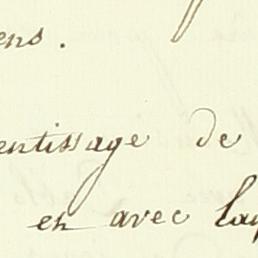 ens.
entissage de
en avec laq